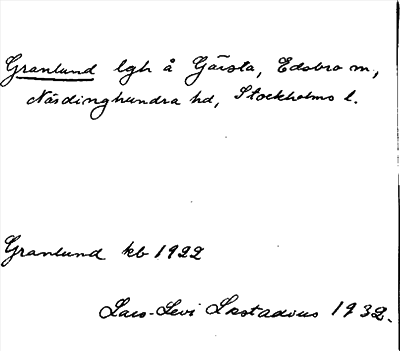 Granlund lgh å Gärsta, Edsbro sn,
Närdinghundra hd, Stockholms l.
Granlund kb 1922
Lars-Levi Læstadius 1932.